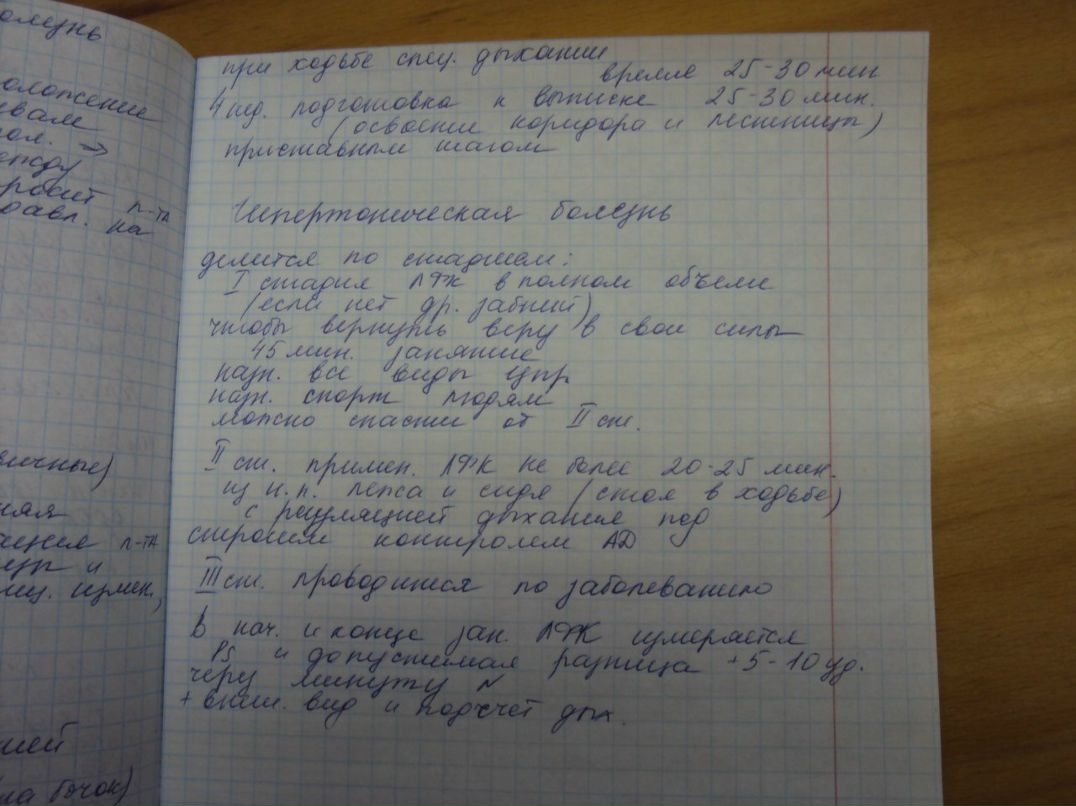 олезнь
оложение
евам
пол. →
ежду
росит п-та
давл. на
вичные)
ная
щения п-та
иц. измен.,
ией
на бочок)
при ходьбе спец. дыхании
время 25-30 мин
4 нед. подготовка к выписке 25-30 мин.
(освоение коридора и лестницы)
приставным шагом
Гипертоническая болезнь
делится по стадием:
I стадия ЛФК в полном объеме
(если нет др. забний)
чтобы вернуть веру в свои силы
45 мин. занятие
назн. все виды упр
назн. спорт людям
можно спасти от II ст.
II ст. примен. ЛФК не более 20-25 мин.
из и.п. лежа и сидя (стоя в ходьбе)
с регуляцией дыхания под
строгим контролем АД
III ст. проводится по заболеванию
В нач. и конце зан. ЛФК измеряется
PS и допустимая разница +5-10 уд.
через минуту N
+ внеш. вид и подсчет дых.